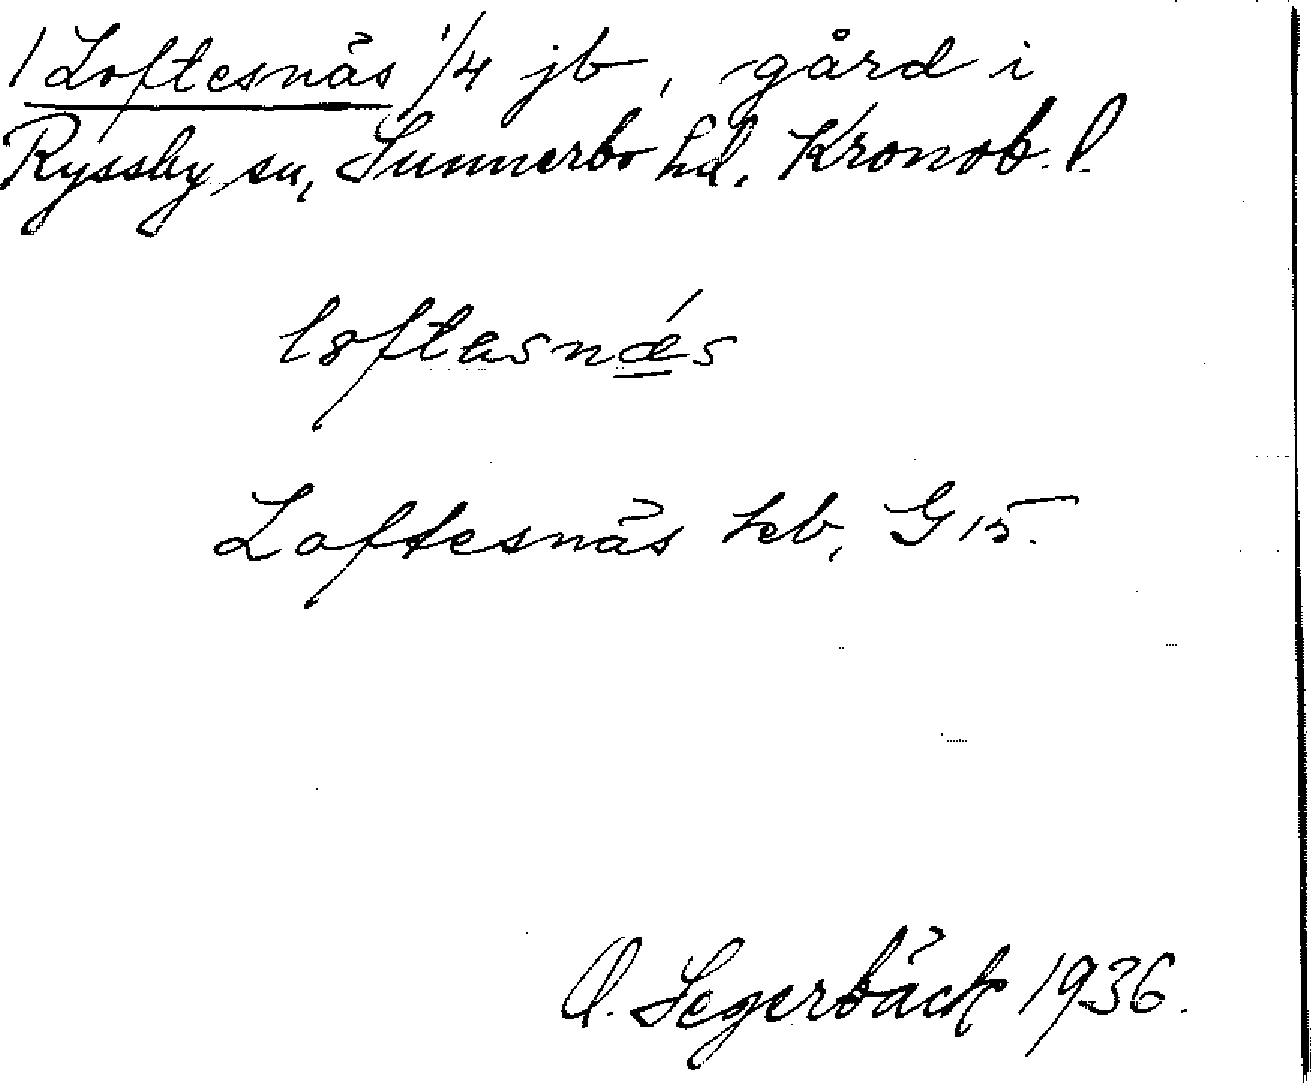 1 Loftesnäs 1/4 jb, gård i
Ryssby sn, Sunnerbo hd. Kronob. l.
l8ftasnǽs
Loftesnäs hcb, G15.
O. Segerbäck 1936.